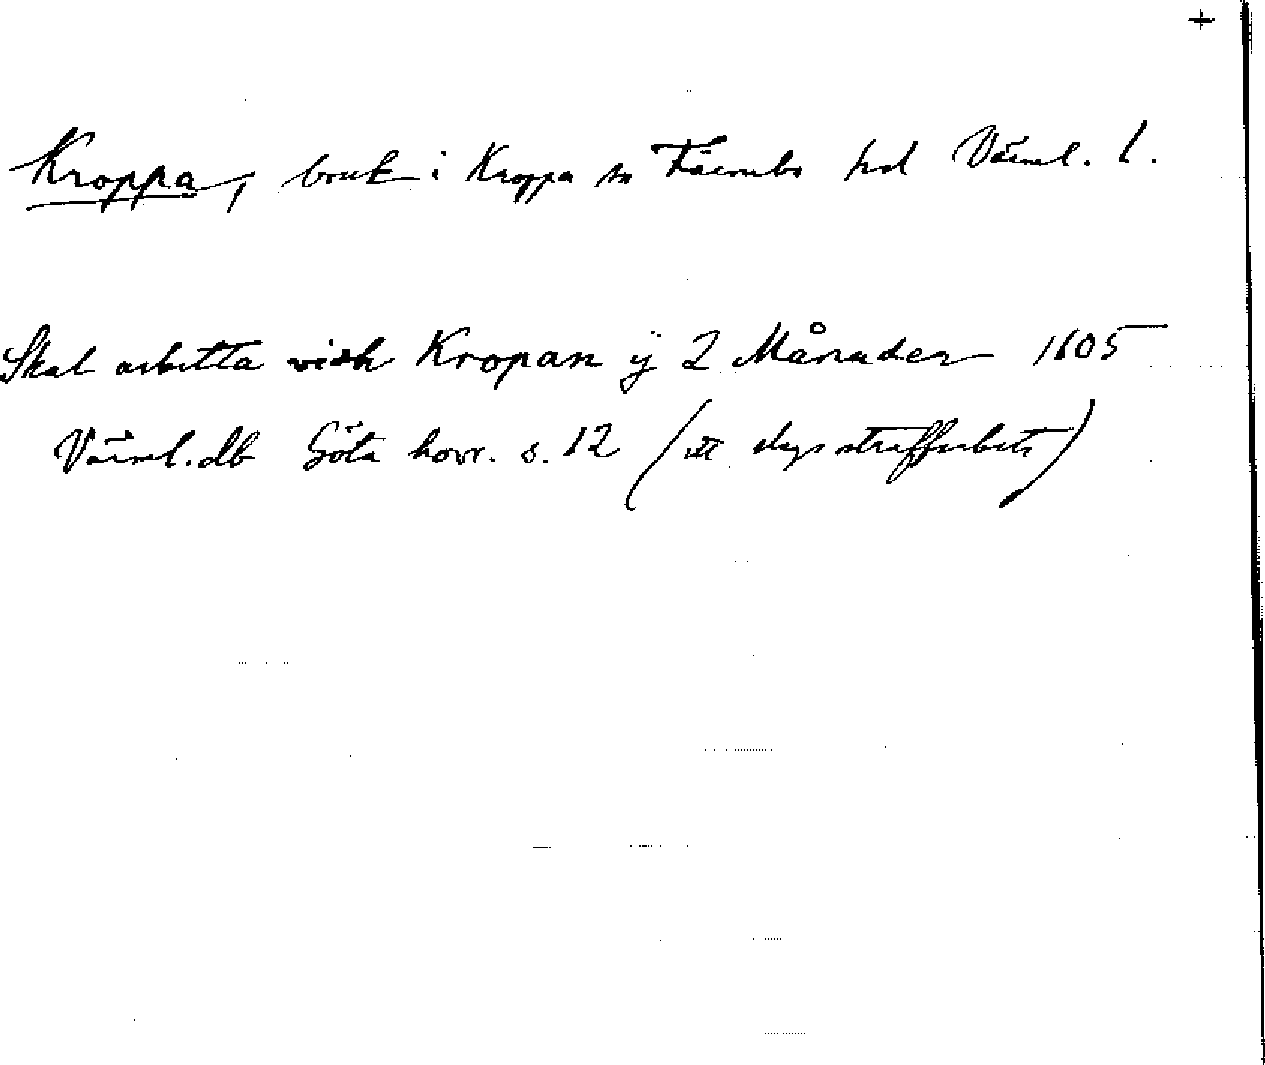 +
Kroppa, bruk i Kroppa sn Färnebo hd Värml. l.
Skal arbetta widh Kropan ÿ 2 Månader 1605
Värml.db Göta hovr. s. 12 (ett slags straffarbete)